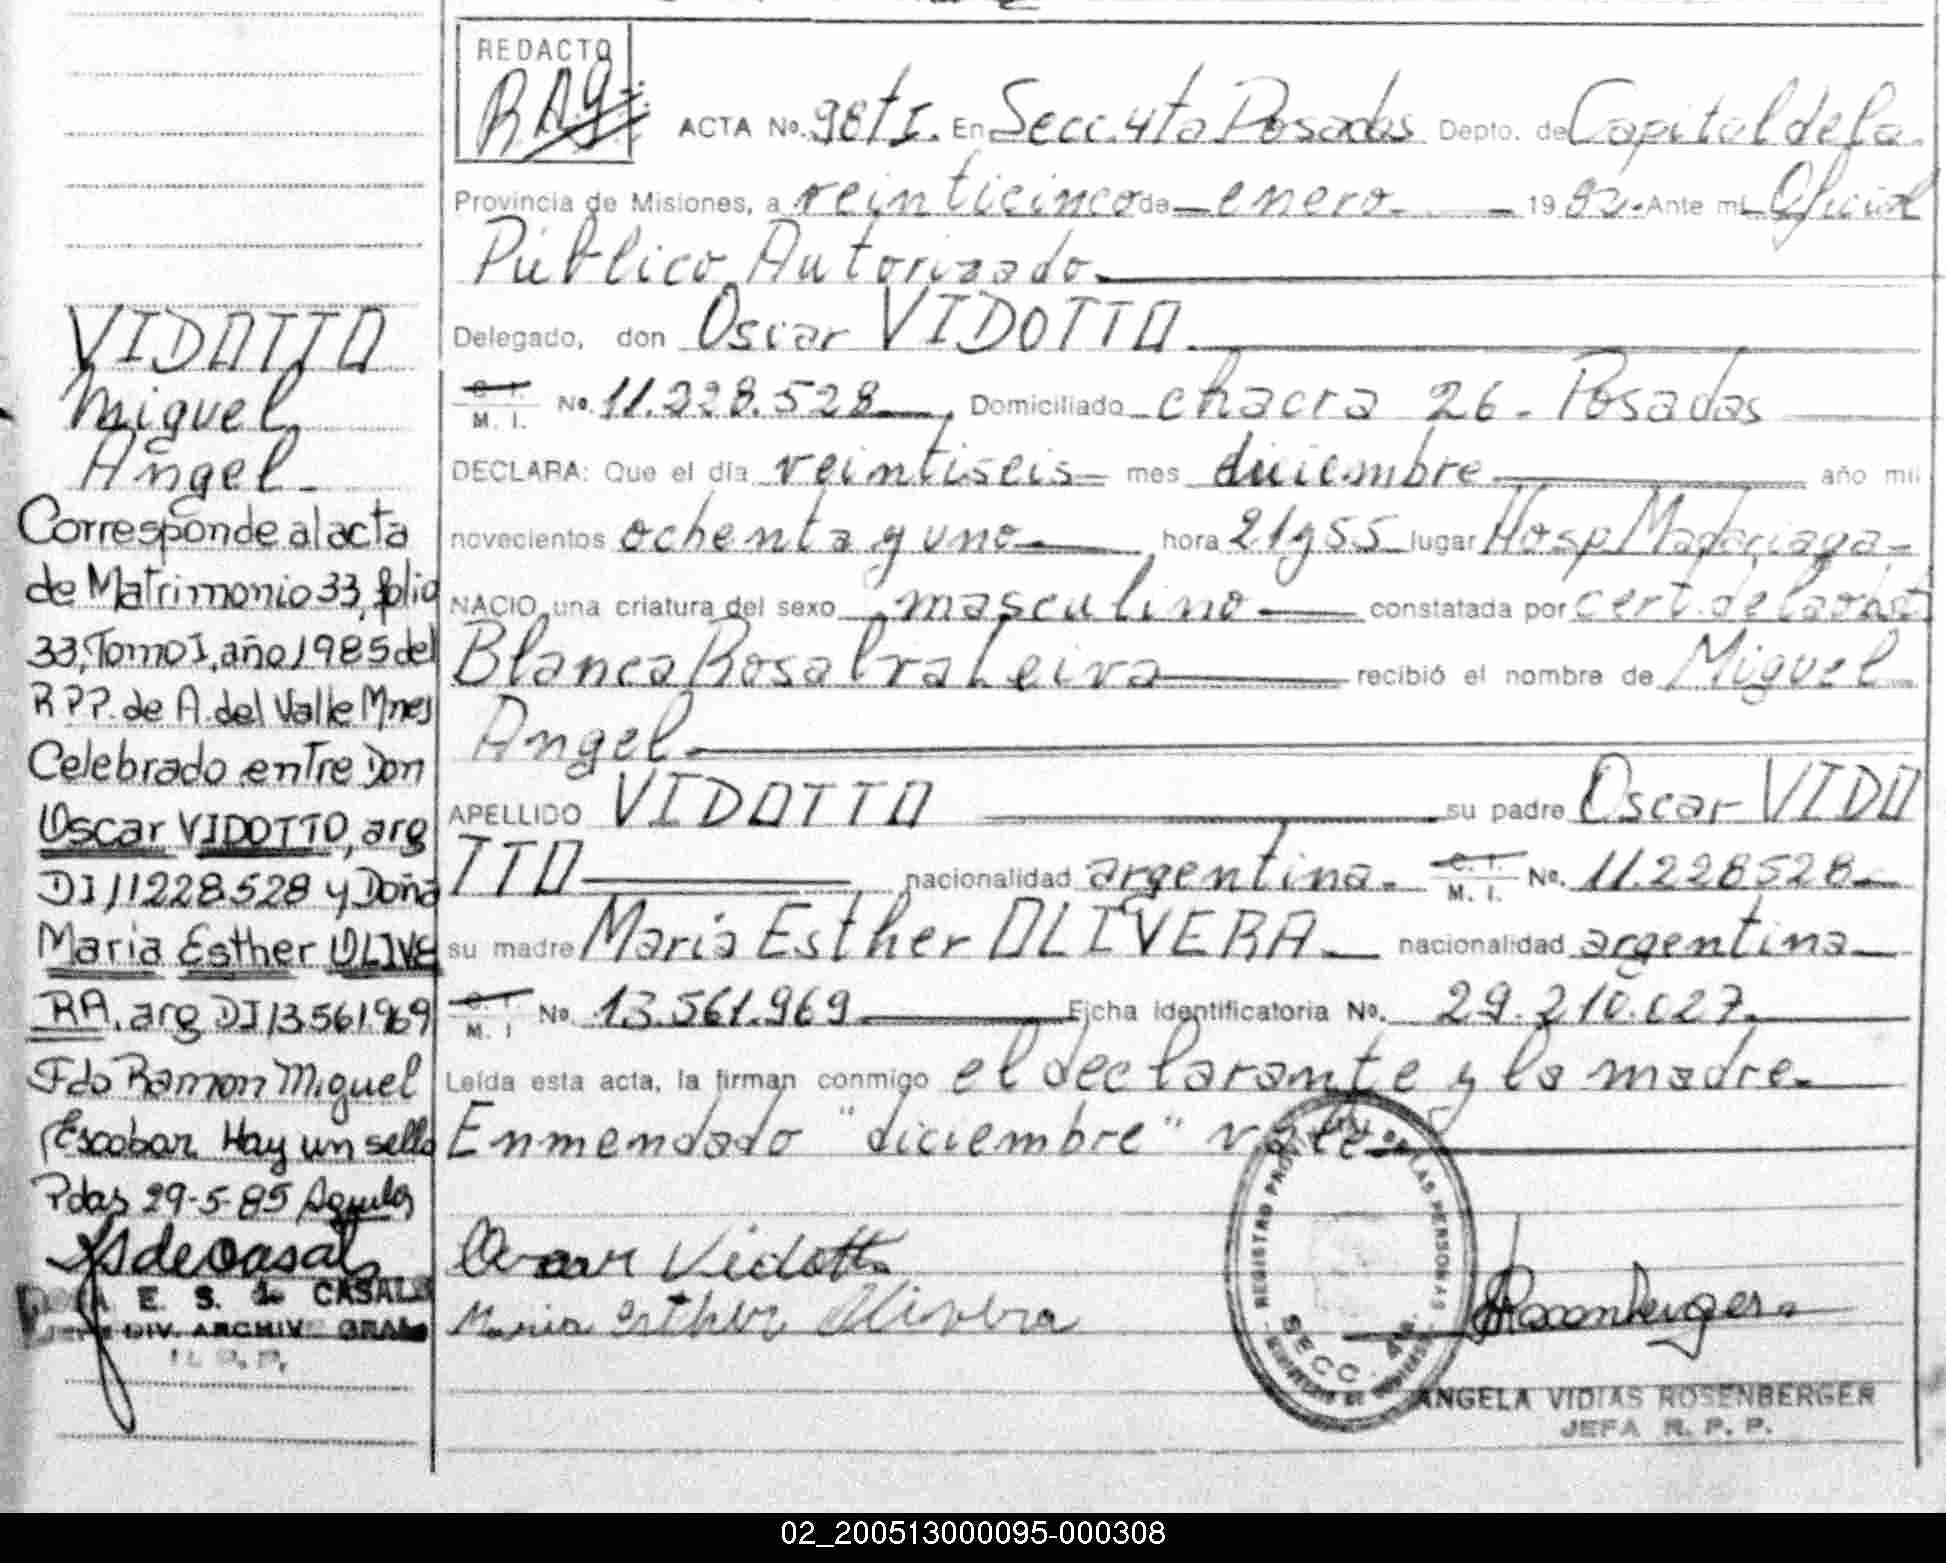 REDACTO
R.A.G.
ACTA No. 98 t I. En Secc. 4ta Posadas Depto. de Capital de la
Provincia de Misiones, a veinticinco de enero 1982. Ante mi Oficial
Público Autorizado.
Delegado, don Oscar VIDOTTO.
C. I. M. I. No. 11.228.528 , Domiciliado chacra 26. Posadas
DECLARA: Que el día veintiseis mes diciembre año mil
novecientos ochenta y uno hora 21 y 55 lugar Hosp Madariaga
NACIO una criatura del sexo masculino constatada por cert. de la obst
Blanca Rosa Leiva recibió el nombre de Miguel
Angel
APELLIDO VIDOTTO su padre Oscar VIDO
TTO nacionalidad argentina. C. I. M. I. No. 11.228528
su madre Maria Esther OLIVERA nacionalidad argentina
C. I. M. I No. 13.561.969 Ficha identificatoria No. 29.210.027.
Leída esta acta, la firman conmigo el declarante y la madre.
Enmendado "diciembre" vale
Oscar Vidotto
Maria Esther Olivera
REGISTRO PROVINCIAL DE LAS PERSONAS
SECC. 4ta.
Rosenberger
ANGELA VIDIAS ROSENBERGER
JEFA R. P. P.
VIDOTTO
Miguel
Angel
Corresponde al acta
de Matrimonio 33, folio
33, Tomo I, año 1985 del
R P P. de A. del Valle Mnes
Celebrado entre Don
Oscar VIDOTTO, arg
DI 11228.528 y Doña
Maria Esther OLIVE
RA, arg DI 13.561.969
Fdo Ramon Miguel
Escobar Hay un sello
Pdas 29-5-85
de Casals
E. S. de CASALS
JEFE DIV. ARCHIVO GRAL
R. P. P.
02_200513000095-000308